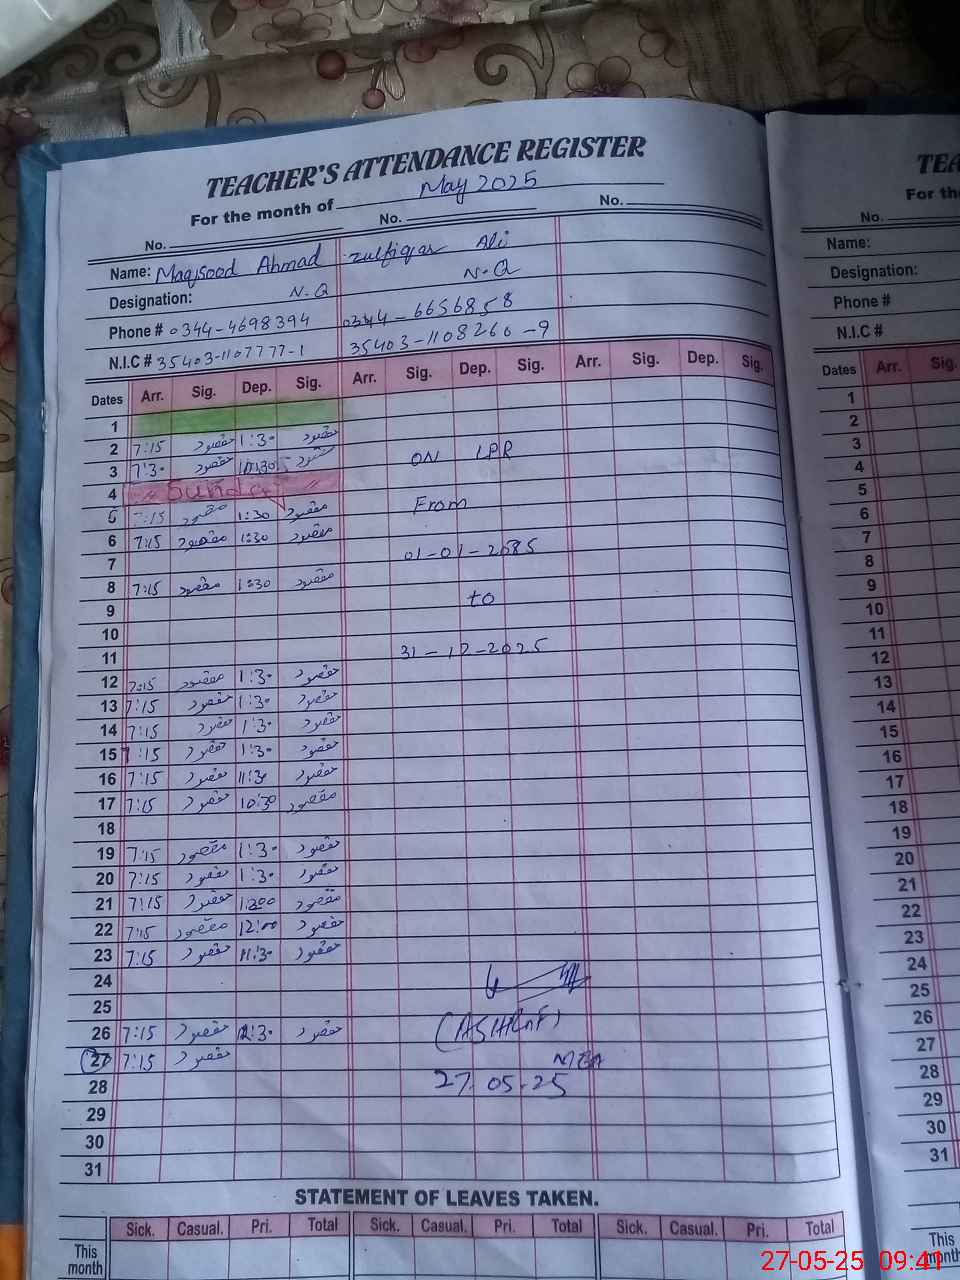 TEACHER'S ATTENDANCE REGISTER
For the month of May 2025
No. No. No.
Name: Maqsood Ahmad Zulfiqar Ali
Designation: N.Q N.Q
Phone # 0344-4698394 0344-6656858
N.I.C # 35403-1107777-1 35403-1108260-9
Dates Arr. Sig. Dep. Sig. Arr. Sig. Dep. Sig. Arr. Sig. Dep. Sig.
1
2 7:15 مقصود 1:30 مقصود
3 7:30 مقصود 10:30 مقصود ON LPR
4 " Sunday "
5 7:15 مقصود 1:30 مقصود From
6 7:15 مقصود 1:30 مقصود
7 01-01-2085
8 7:15 مقصود 1:30 مقصود
9 to
10
11 31-12-2025
12 7:15 مقصود 1:30 مقصود
13 7:15 مقصود 1:30 مقصود
14 7:15 مقصود 1:30 مقصود
15 7:15 مقصود 1:30 مقصود
16 7:15 مقصود 11:30 مقصود
17 7:15 مقصود 10:30 مقصود
18
19 7:15 مقصود 1:30 مقصود
20 7:15 مقصود 1:30 مقصود
21 7:15 مقصود مقصود
22 7:15 مقصود 12:00 مقصود
23 7:15 مقصود 11:30 مقصود
24
25
26 7:15 مقصود 12:30 مقصود (ASHRAF)
27 7:15 مقصود MEA
28 27.05.25
29
30
31
STATEMENT OF LEAVES TAKEN.
Sick. Casual. Pri. Total Sick. Casual. Pri. Total Sick. Casual. Pri. Total
This month
TEA
For the
No.
Name:
Designation:
Phone #
N.I.C #
Dates Arr. Sig.
1
2
3
4
5
6
7
8
9
10
11
12
13
14
15
16
17
18
19
20
21
22
23
24
25
26
27
28
29
30
31
This month
27-05-25 09:41